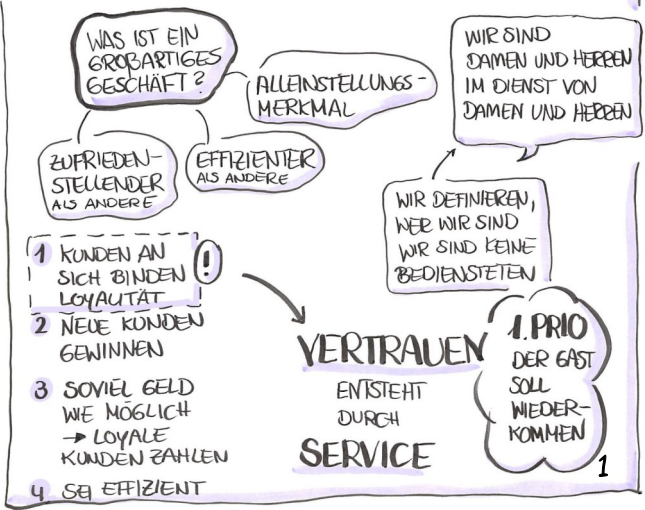 WAS IST EIN
GROßARTIGES
GESCHÄFT?
ALLEINSTELLUNGS-
MERKMAL
ZUFRIEDEN-
STELLENDER
ALS ANDERE
EFFIZIENTER
ALS ANDERE
WIR SIND
DAMEN UND HERREN
IM DIENST VON
DAMEN UND HERREN
WIR DEFINIEREN,
WER WIR SIND
WIR SIND KEINE
BEDIENSTETEN
1 KUNDEN AN
SICH BINDEN
LOYALITÄT
!
2 NEUE KUNDEN
GEWINNEN
3 SOVIEL GELD
WIE MÖGLICH
→ LOYALE
KUNDEN ZAHLEN
4 SEI EFFIZIENT
VERTRAUEN
ENTSTEHT
DURCH
SERVICE
1. PRIO
DER GAST
SOLL
WIEDER-
KOMMEN
1